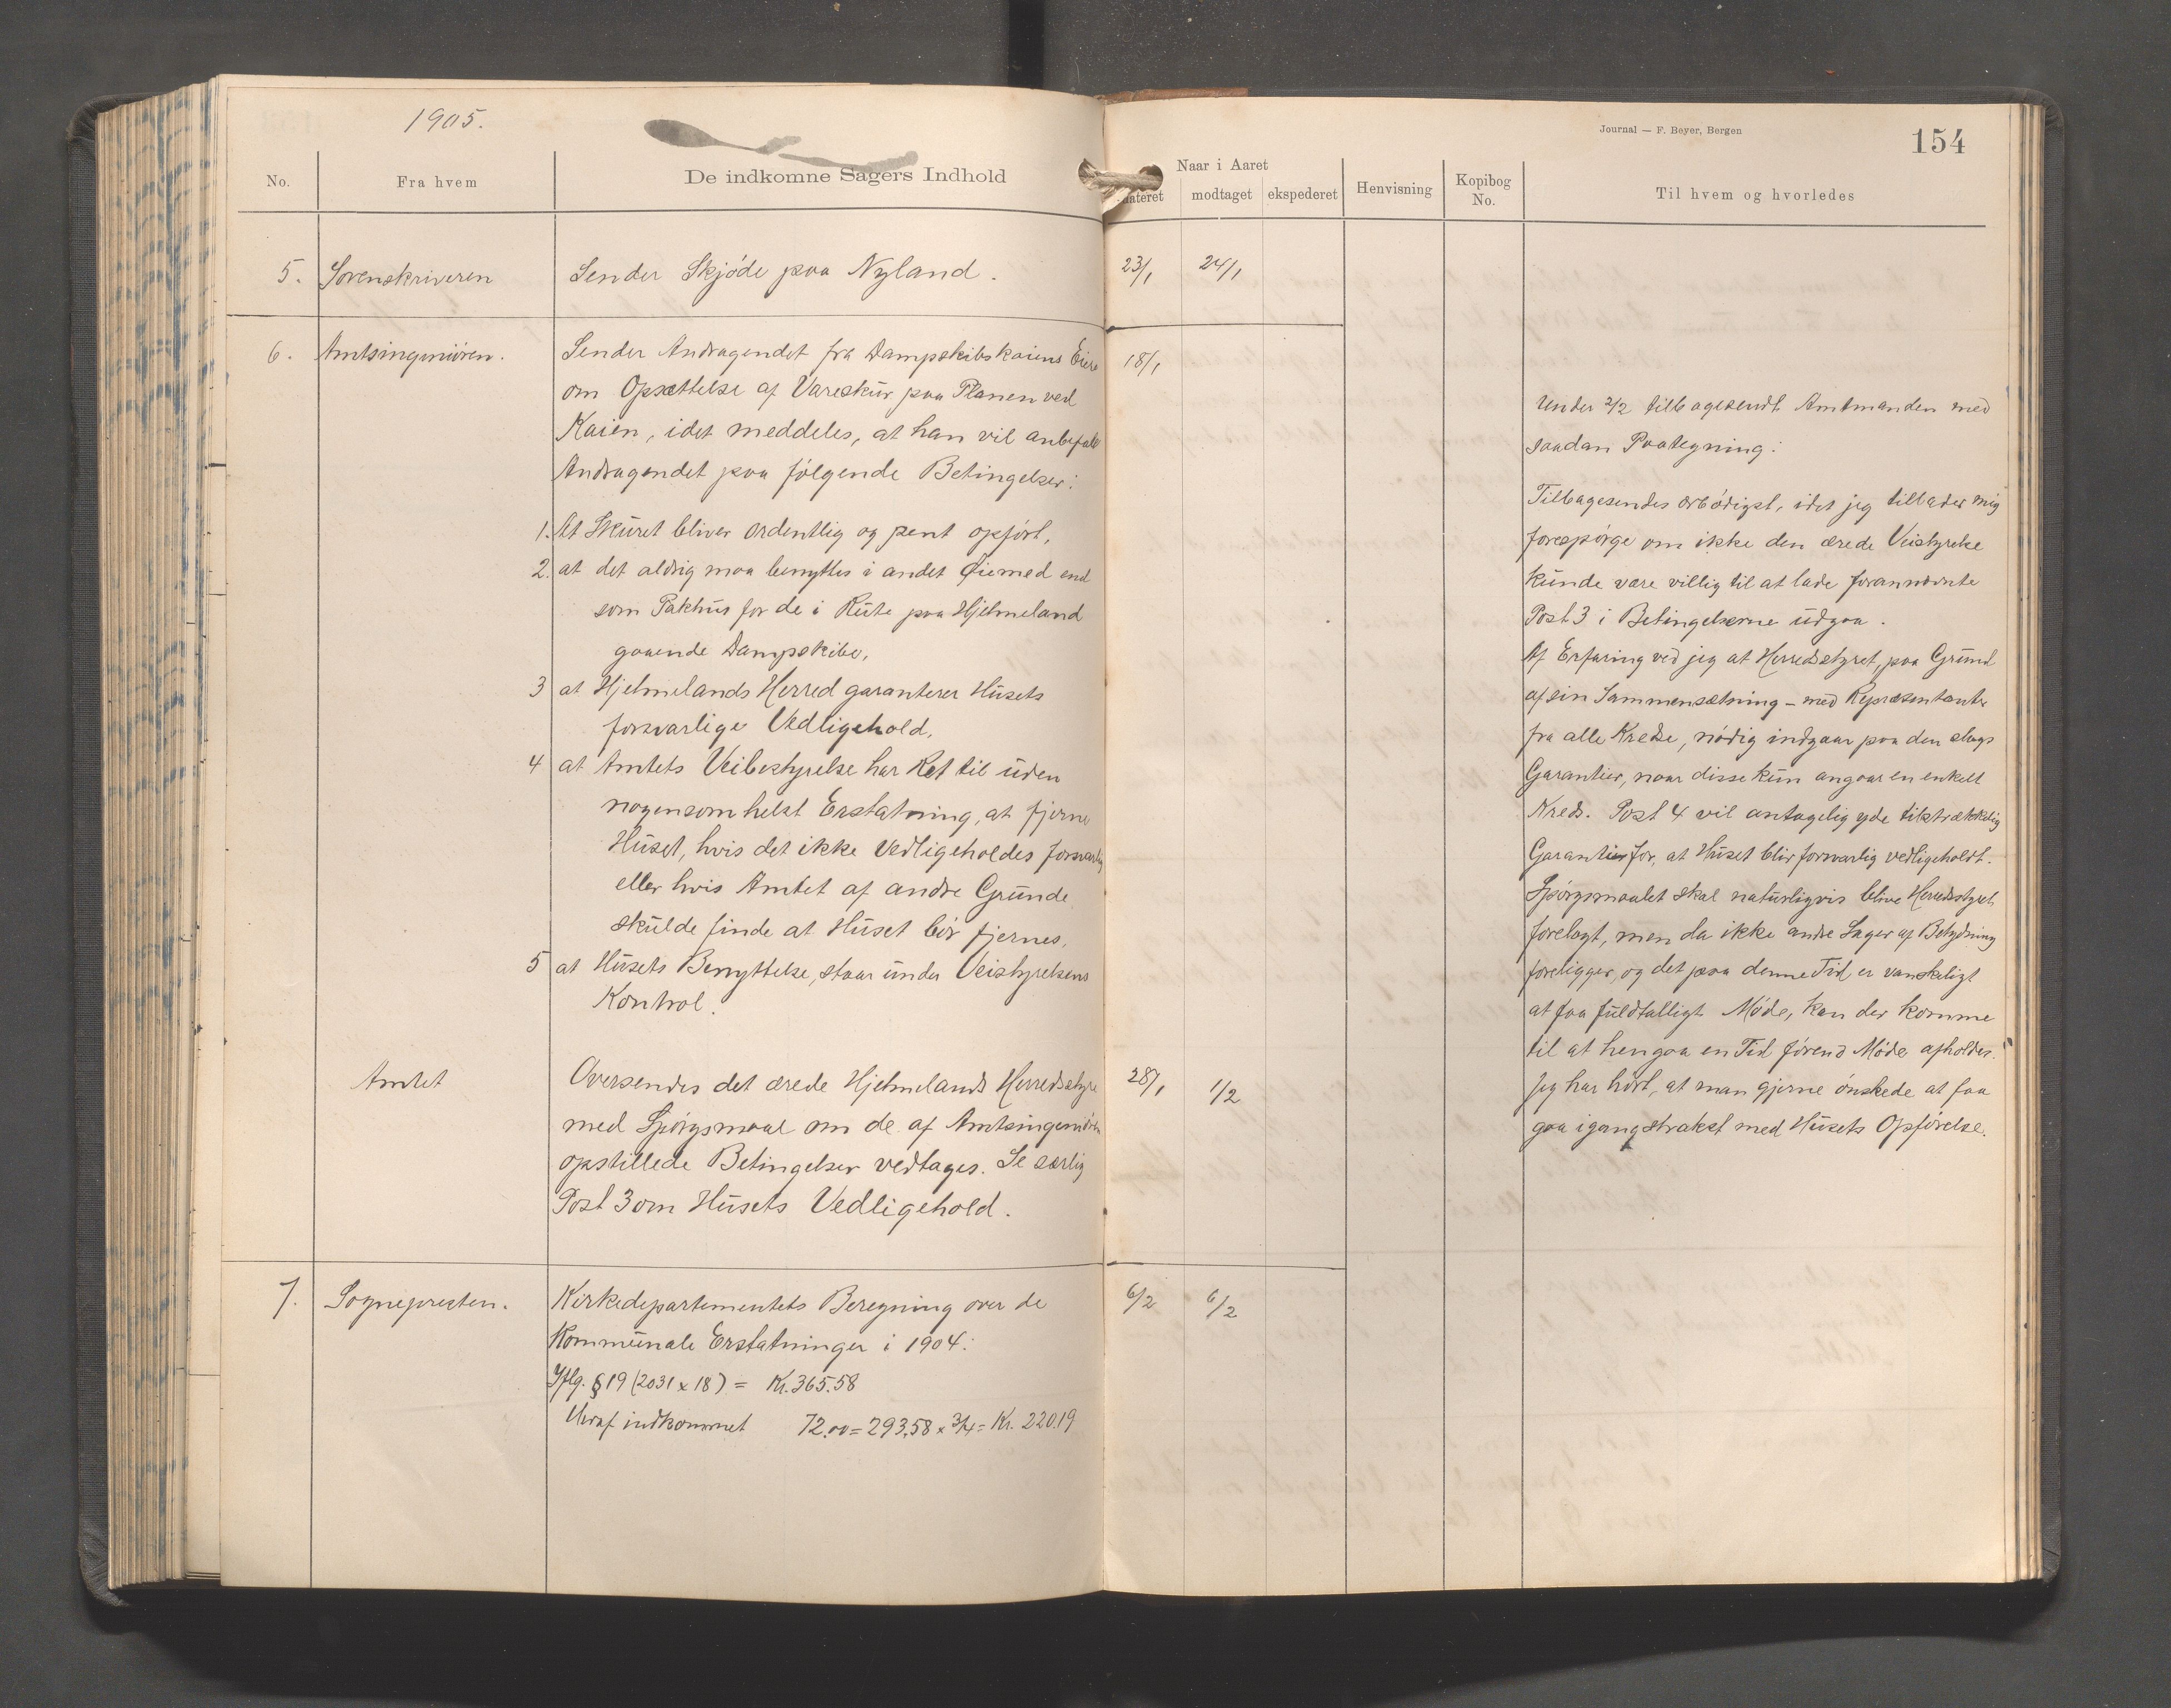 1905.
No.
Fra hvem
De indkomne Sagers Indhold
5. Sorenskriveren
Sender Skjöde paa Nyland.
6. Amtsingeniören.
Sender Andragendet fra Dampskibskaiens Eiere
om Opsættelse af Vareskur paa Planen ved
Kaien, idet meddeles, at han vil anbefale
Andragendet paa følgende Betingelser:
1. At Skuret bliver ordentlig og pent opført,
2. at det aldrig maa benyttes i andet Øiemed end
som Pakhus for de i Rute paa Hjelmeland
gaaende Dampskibe,
3 at Hjelmelands Herred garanterer Husets
forsvarlige Vedligehold,
4 at Amtets Veibestyrelse har Ret til uden
nogensomhelst Erstatning, at fjerne
Huset, hvis det ikke Vedligeholdes forsvarlig
eller hvis Amtet af andre Grunde
skulde finde at Huset bør fjernes,
5 at Husets Benyttelse, staar under Veistyrelsens
Kontrol.
Amtet
Oversendes det ærede Hjelmelands Herredsstyre
med Spörgsmaal om de af Amtsingeniören
opstillede Betingelser vedtages. Se særlig
Post 3 om Husets Vedligehold.
7. Sognepresten.
Kirkedepartementets Beregning over de
Kommunale Erstatninger i 1904:
Iflg. § 19 (2031 x 18) = Kr. 365.58
Heraf indkommet 72.00 = 293.58 x 3/4 = Kr. 220.19
Journal — F. Beyer, Bergen
154
Naar i Aaret
dateret
modtaget
ekspederet
Henvisning
Kopibog
No.
Til hvem og hvorledes
23/1 24/1
18/1
28/1 1/2
6/2 6/2
Under 2/2 tilbagesendt Amtmanden med
saadan Paategning:
Tilbagesendes ærbødigst, idet jeg tillader mig
forespørge om ikke den ærede Veistyrelse
kunde være villig til at lade forannævnte
Post 3 i Betingelserne udgaa.
Af Erfaring ved jeg at Herredsstyret, paa Grund
af sin Sammensætning – med Repræsentanter
fra alle Kredse, nødig indgaar paa den slags
Garantier, naar disse kun angaar en enkelt
Kreds. Post 4 vil antagelig yde tilstrækkelig
Garantier for, at Huset blir forsvarlig vedligeholdt.
Spørgsmaalet skal naturligvis blive Herredsstyret
forelagt, men da ikke andre Sager af Betydning
foreligger, og det paa denne Tid er vanskeligt
at faa fuldtalligt Møde, kan der komme
til at hengaa en Tid førend Møde afholdes.
Jeg har hørt, at man gjerne ønskede at faa
gaa igang strakst med Husets Opførelse.